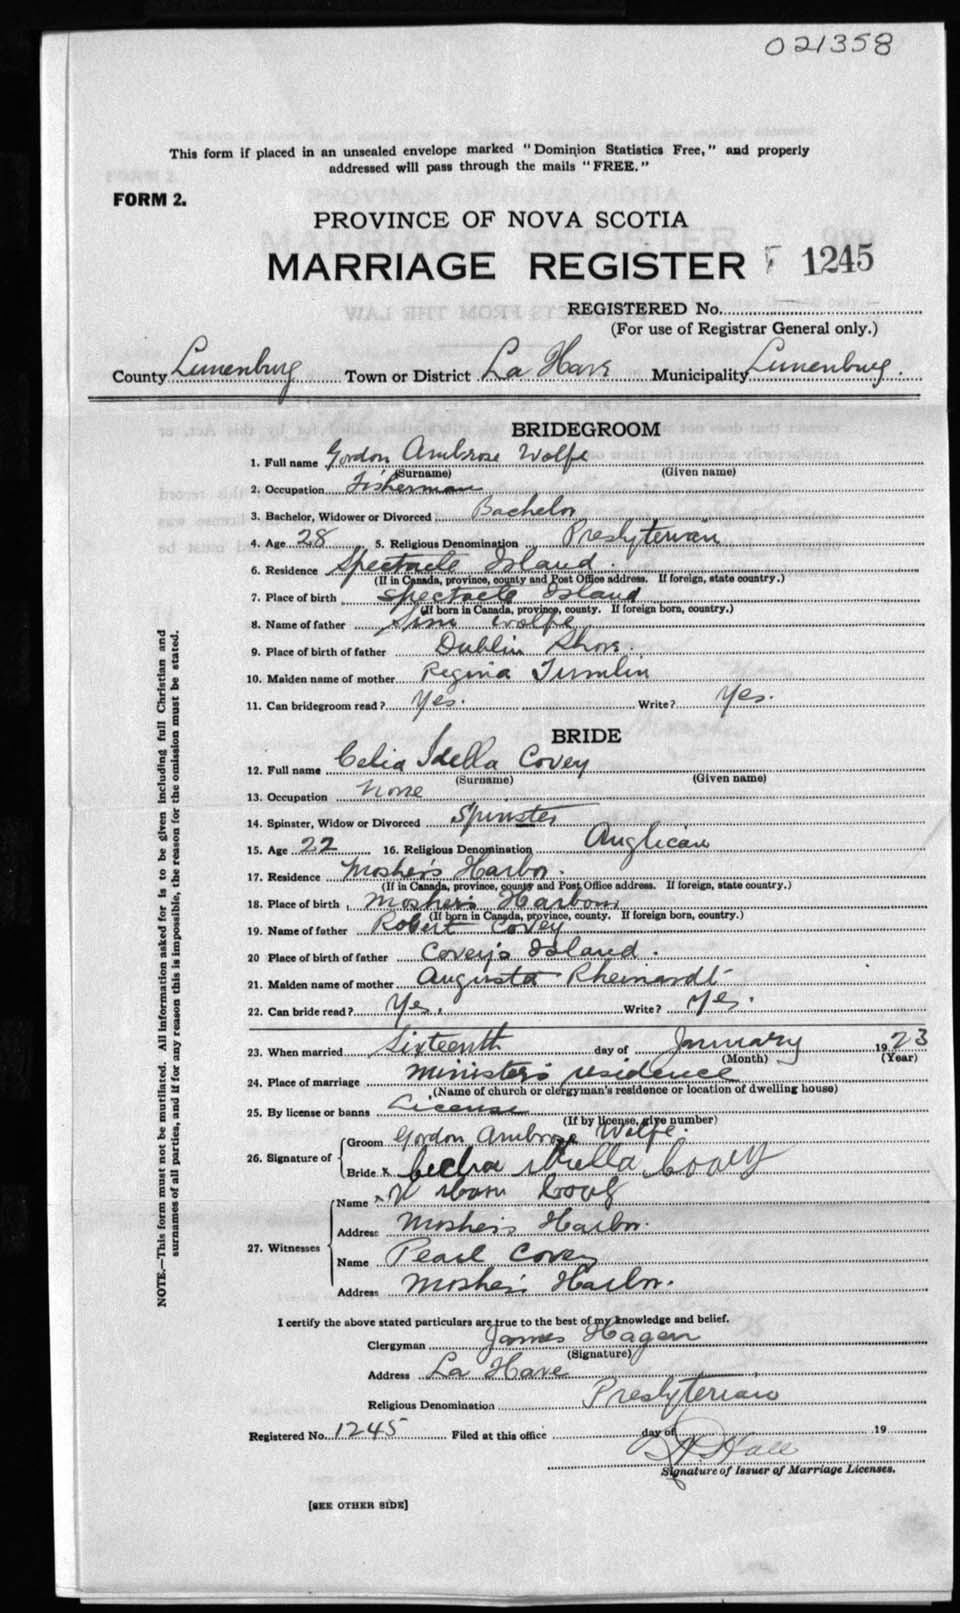 021358
This form if placed in an unsealed envelope marked "Dominion Statistics Free," and properly
addressed will pass through the mails "FREE."
FORM 2.
PROVINCE OF NOVA SCOTIA
MARRIAGE REGISTER 1245
REGISTERED No.
(For use of Registrar General only.)
County Lunenburg Town or District La Have Municipality Lunenburg.
BRIDEGROOM
1. Full name Gordon Ambrose Wolfe
(Surname) (Given name)
2. Occupation Fisherman
3. Bachelor, Widower or Divorced Bachelor
4. Age 28 5. Religious Denomination Presbyterian
6. Residence Spectacle Island.
(If in Canada, province, county and Post Office address. If foreign, state country.)
7. Place of birth Spectacle Island
(If born in Canada, province, county. If foreign born, country.)
8. Name of father Sim Wolfe
9. Place of birth of father Dublin Shore.
10. Maiden name of mother Regina Tumlin
11. Can bridegroom read? Yes. Write? Yes.
BRIDE
12. Full name Celia Idella Covey
(Surname) (Given name)
13. Occupation None
14. Spinster, Widow or Divorced Spinster
15. Age 22 16. Religious Denomination Anglican
17. Residence Mosher's Harbor.
(If in Canada, province, county and Post Office address. If foreign, state country.)
18. Place of birth Mosher's Harbour
(If born in Canada, province, county. If foreign born, country.)
19. Name of father Robert Covey
20 Place of birth of father Covey's Island.
21. Maiden name of mother Augusta Rheinardt
22. Can bride read? Yes. Write? Yes.
23. When married Sixteenth day of January 1923
(Month) (Year)
24. Place of marriage Minister's residence
(Name of church or clergyman's residence or location of dwelling house)
25. By license or banns License
(If by license, give number)
26. Signature of
Groom Gordon Ambrose Wolfe.
Bride x Celia Idella Covey
27. Witnesses
Name x
Address Mosher's Harbor.
Name Pearl Covey
Address Mosher's Harbor.
I certify the above stated particulars are true to the best of my knowledge and belief.
Clergyman James Hagen
(Signature)
Address La Have
Religious Denomination Presbyterian
Registered No. 1245 Filed at this office day of 19
Hall
Signature of Issuer of Marriage Licenses.
[SEE OTHER SIDE]
NOTE.—This form must not be mutilated. All information asked for is to be given including full Christian and
surnames of all parties, and if for any reason this is impossible, the reason for the omission must be stated.